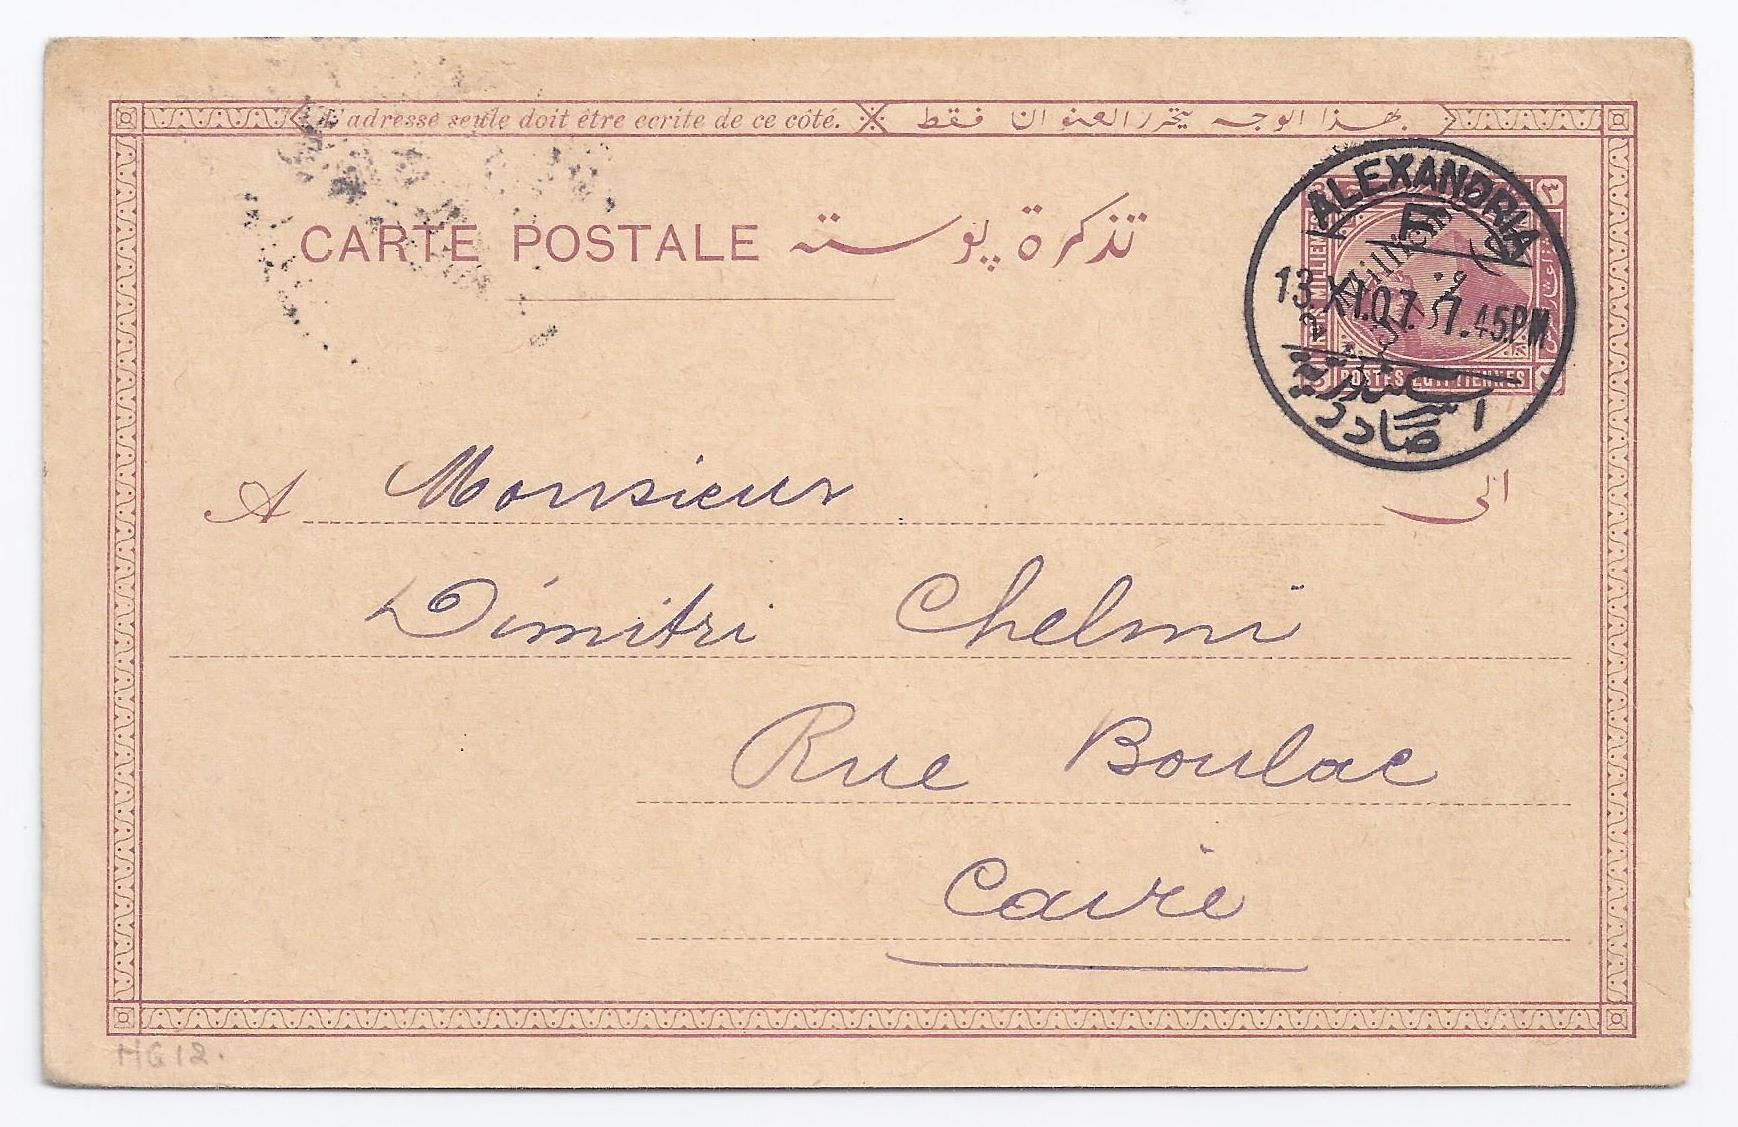 L'adresse seule doit être ecrite de ce côté. بهذا الوجه يتحرر العنوان فقط
CARTE POSTALE تذكرة پوستة
ALEXANDRIA
E
13.XI.07. 7.45PM
اسكندرية
صادر
POSTES EGYPTIENNES
A Monsieur الى
Dimitri Chelmi
Rue Boulac
Caire
HG 12.